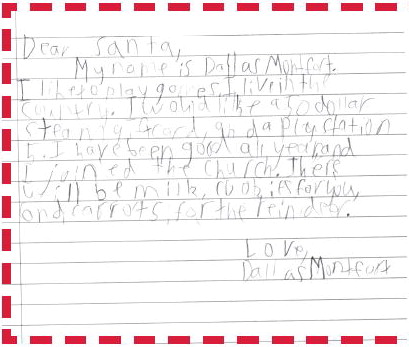 Dear Santa,
My name is Dallas Montfort.
I like to play games. I live in the
country. I would like a 50 dollar
Steam giftcard, and a Play Station
5. I have been good all year, and
I joined the church. There
will be milk, for you,
and carrots, for the reindeer.
Love,
Dallas Montfort